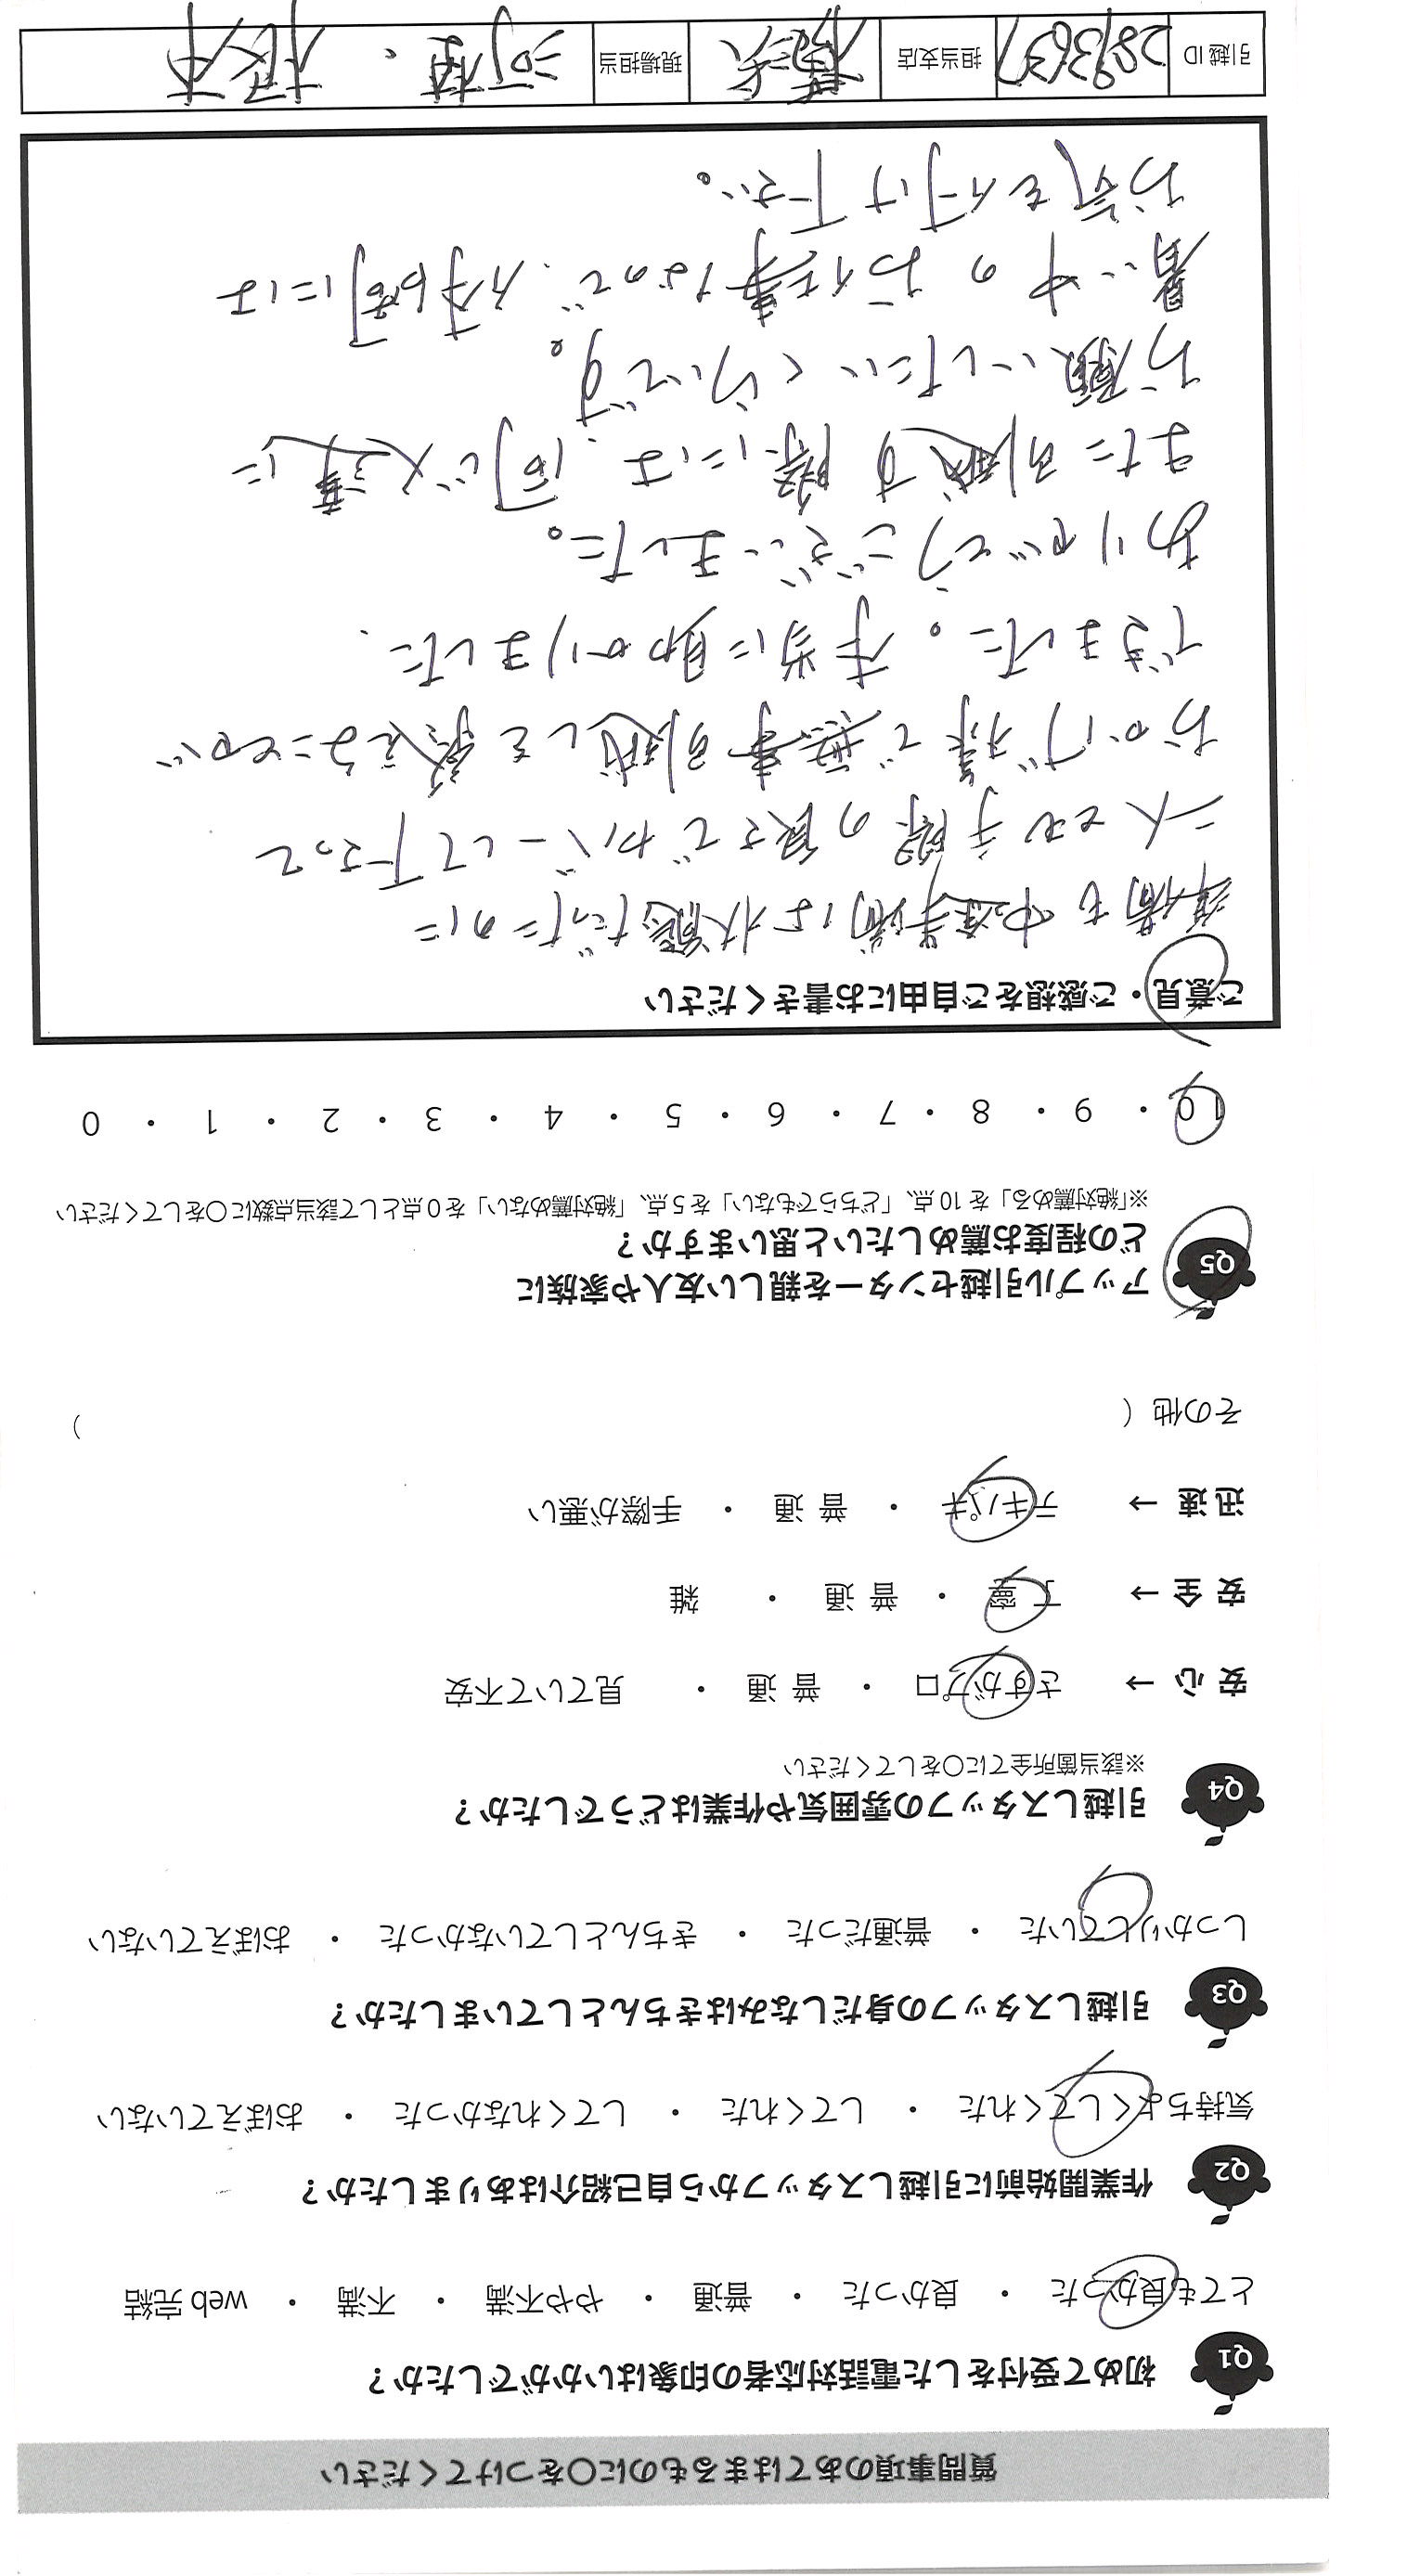 質問事項のあてはまるものに○をつけてください
Q1 初めて受付をした電話対応者の印象はいかがでしたか？
とても良かった ・ 良かった ・ 普通 ・ やや不満 ・ 不満 ・ web 完結
Q2 作業開始前に引越しスタッフから自己紹介はありましたか？
気持ちよくしてくれた ・ してくれた ・ してくれなかった ・ おぼえていない
Q3 引越しスタッフの身だしなみはきちんとしていましたか？
しっかりしていた ・ 普通だった ・ きちんとしていなかった ・ おぼえていない
Q4 引越しスタッフの雰囲気や作業はどうでしたか？
※該当箇所全てに○をしてください
安心 → さすがプロ ・ 普通 ・ 見ていて不安
安全 → 丁寧 ・ 普通 ・ 雑
迅速 → テキパキ ・ 普通 ・ 手際が悪い
その他（ ）
Q5 アップル引越センターを親しい友人や家族に
どの程度お薦めしたいと思いますか？
※「絶対薦める」を 10 点、「どちらでもない」を 5 点、「絶対薦めない」を 0 点として該当点数に○をしてください
10 ・ 9 ・ 8 ・ 7 ・ 6 ・ 5 ・ 4 ・ 3 ・ 2 ・ 1 ・ 0
ご意見・ご感想をご自由にお書きください
準備も中途半端な状態だったのに
二人とも手際の良さでカバーして下さって
おかげ様で無事引越しを終えることが
できました。本当に助かりました、
ありがとうございました。
また引越す際には、同じ人達に
お願いしたいくらいです。
暑い中のお仕事なので、体調には
お気を付け下さい。
引越 ID 2893637 担当支店 現場担当 河村 ・